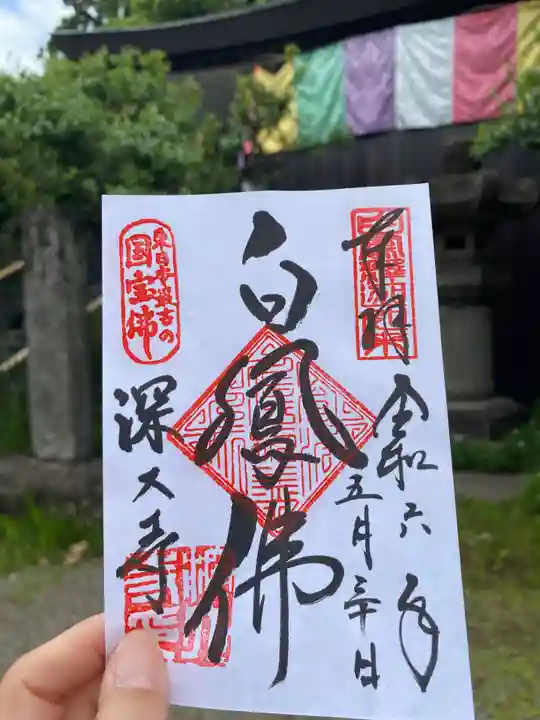 奉拝
令和六年
五月三十日
白鳳佛
東日本最古の
国宝佛
深大寺